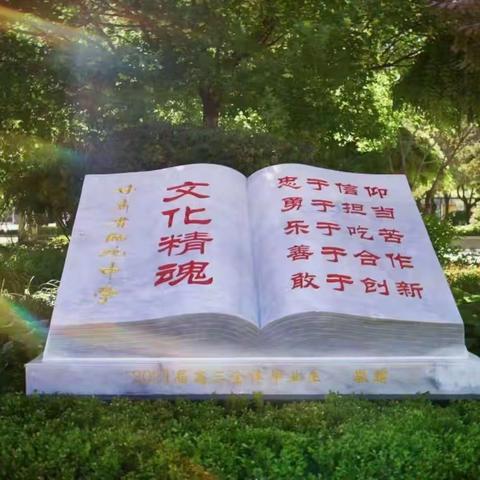 甘肃省
中学
文化精魂
忠于信仰
勇于担当
乐于吃苦
善于合作
敢于创新
届高三全体毕业生 敬赠